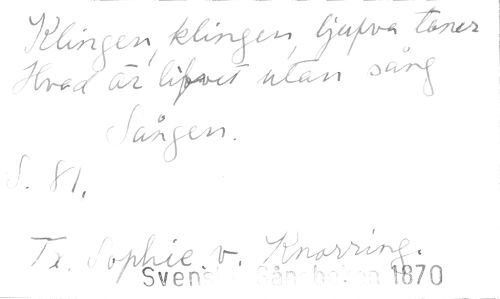 Klingen, klingen, ljufva toner
Hvad är lifvet utan sång
Sången.
S. 81.
Tx. Sophie v. Knorring.
Svenska Sångboken 1870